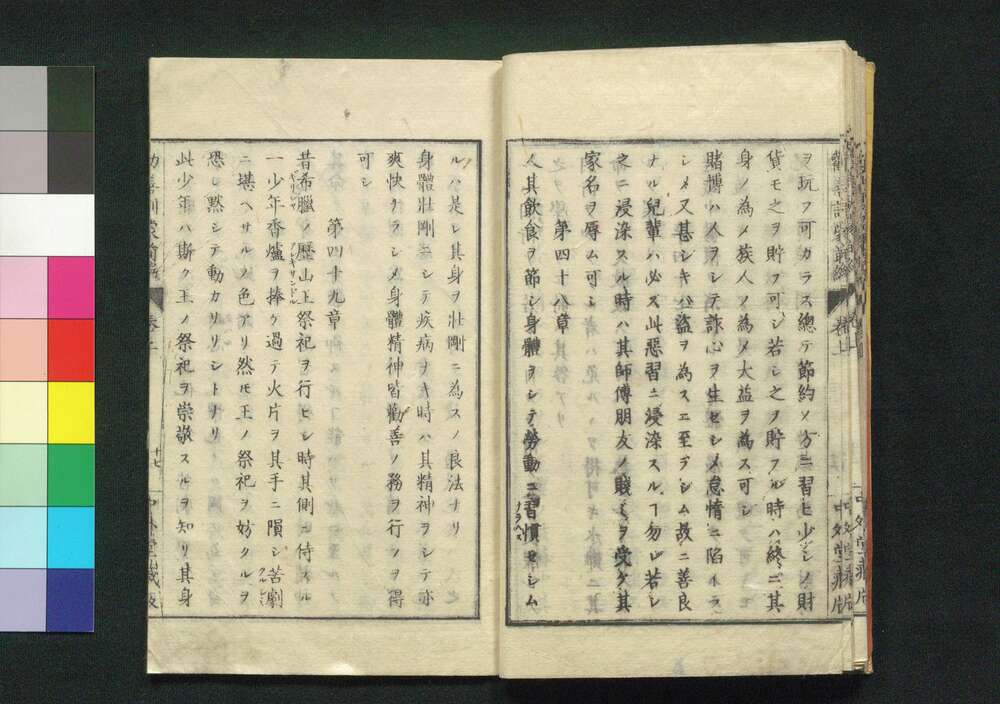 ヲ玩フ可カラス總テ節約ノ方ニ習ヒ少シノ財
貨モ之ヲ貯フ可シ若シ之ヲ貯フル時ハ終ニ其
身ノ為メ族人ノ為メ大益ヲ為ス可シ
賭博ハ人ヲシテ詐心ヲ生セシメ怠惰ニ陷イラ
シメ又甚シキハ盜ヲ為スニ至ラシム故ニ善良
ナル兒輩ハ必ス此惡習ニ浸染スルヿ勿レ若シ
之ニ浸染スル時ハ其師傅朋友ノ賤ミヲ受ケ其
家名ヲ辱ム可シ
第四十八章
人其飲食ヲ節シ身體ヲシテ勞動ニ習慣セシム
ルハ是レ其身ヲ壯剛ニ為スノ良法ナリ
身體壯剛ニシテ疾病ヲキ時ハ其精神ヲシテ亦
爽快ナラシメ身體精神皆勸善ノ務ヲ行フヲ得
可シ
第四十九章
昔希臘ノ歷山王祭祀ヲ行ヒシ時其側ニ侍スル
一少年香爐ヲ捧ケ過テ火片ヲ其手ニ隕シ苦劇
ニ堪ヘサルノ色アリ然モ王ノ祭祀ヲ妨タルヲ
恐レ黙シテ動カサリシトナリ
此少年ハ斯ク王ノ祭祀ヲ崇敬スルヲ知リ其身
卷二
十七